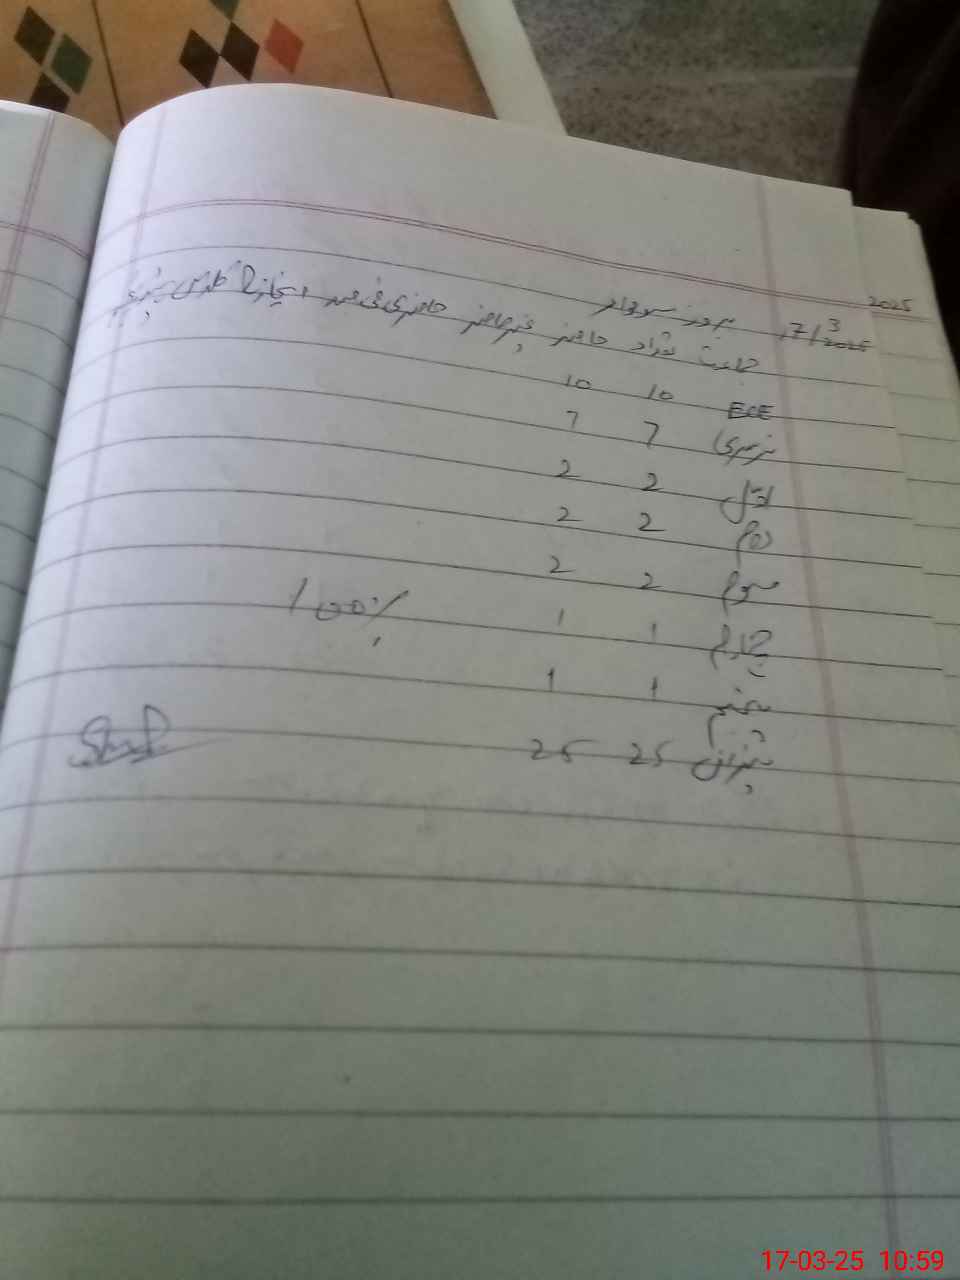 2025
17/3/2025 بروز سوموار
جماعت تعداد حاضر غیرحاضر حاضری فی صد
ECE 10 10
نرسری 7 7
اوّل 2 2
دوم 2 2
سوم 2 2
چہارم 1 1 100%
پنجم 1 1
میزان 25 25
17-03-25 10:59